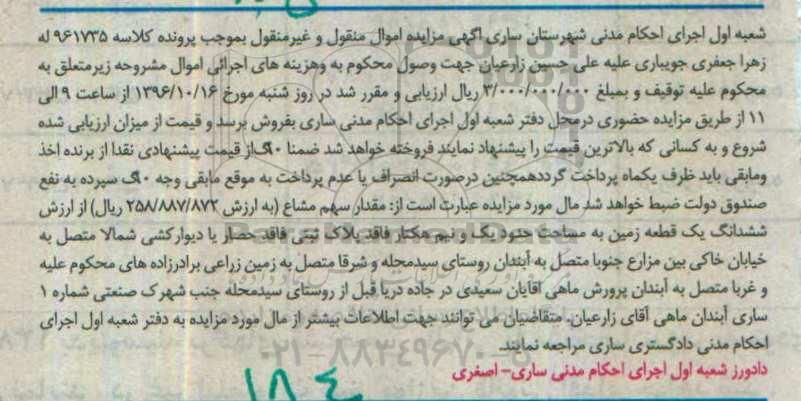 شعبه اول اجرای احکام مدنی شهرستان ساری آگهی مزایده اموال منقول و غیرمنقول بموجب پرونده کلاسه ۹۶۱۷۳۵ له
زهرا جعفری جویباری علیه علی حسین زارعیان جهت وصول محکوم به وهزینه های اجرائی اموال مشروحه زیرمتعلق به
محکوم علیه توقیف و بمبلغ ۳/۰۰۰/۰۰۰/۰۰۰ ریال ارزیابی و مقرر شد در روز شنبه مورخ ۱۳۹۶/۱۰/۱۶ از ساعت ۹ الی
۱۱ از طریق مزایده حضوری درمحل دفتر شعبه اول اجرای احکام مدنی ساری بفروش برسد و قیمت از میزان ارزیابی شده
شروع و به کسانی که بالاترین قیمت را پیشنهاد نمایند فروخته خواهد شد ضمنا ۱۰٪ از قیمت پیشنهادی نقدا از برنده اخذ
ومابقی باید ظرف یکماه پرداخت گرددهمچنین درصورت انصراف یا عدم پرداخت به موقع مابقی وجه ۱۰٪ سپرده به نفع
صندوق دولت ضبط خواهد شد مال مورد مزایده عبارت است از: مقدار سهم مشاع (به ارزش ۲۵۸/۸۸۷/۸۷۲ ریال) از ارزش
ششدانگ یک قطعه زمین به مساحت حدود یک و نیم هکتار فاقد پلاک ثبتی فاقد حصار یا دیوارکشی شمالا متصل به
خیابان خاکی بین مزارع جنوبا متصل به آبندان روستای سیدمحله و شرقا متصل به زمین زراعی برادرزاده های محکوم علیه
و غربا متصل به آبندان پرورش ماهی آقایان سعیدی در جاده دریا قبل از روستای سیدمحله جنب شهرک صنعتی شماره ۱
ساری آبندان ماهی آقای زارعیان. متقاضیان می توانند جهت اطلاعات بیشتر از مال مورد مزایده به دفتر شعبه اول اجرای
احکام مدنی دادگستری ساری مراجعه نمایند.
۰۲۱-۸۸۳۴۹۶۷۰-۵
دادورز شعبه اول اجرای احکام مدنی ساری- اصغری
۱۸۴